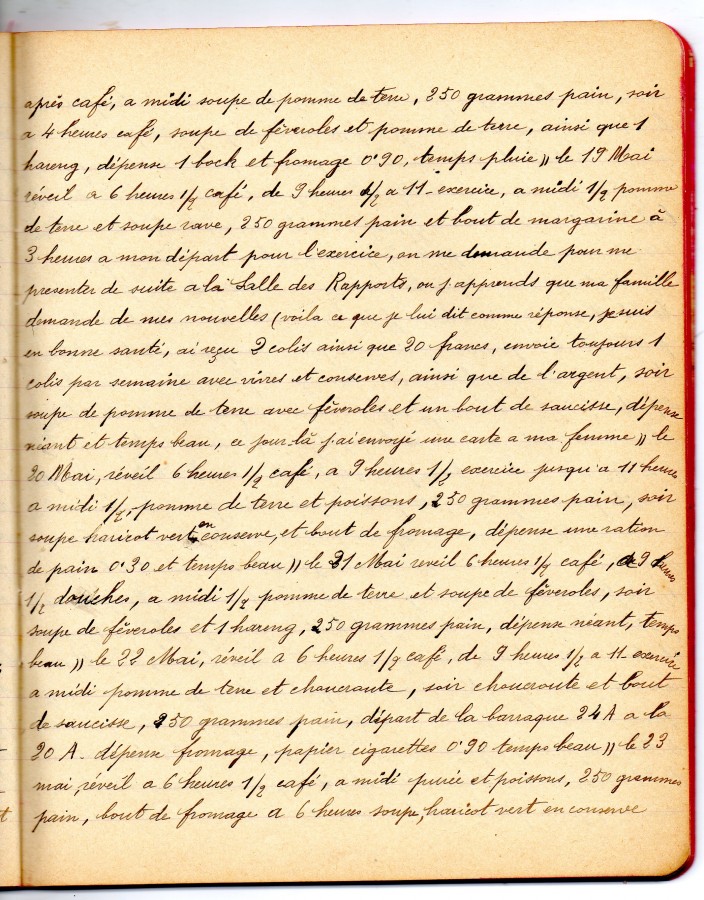 après café, a midi soupe de pomme de terre, 250 grammes pain, soir
a 4 heures café, soupe de fêveroles et pomme de terre, ainsi que 1
hareng, dépense 1 bock et fromage 0f90, temps pluie )) le 19 Mai
réveil a 6 heures 1/2 café, de 9 heures 1/2 a 11 exercice, a midi 1/2 pomme
de terre et soupe rave, 250 grammes pain et bout de margarine à
3 heures a mon départ pour l'exercice, on me demande pour me
presenter de suite a la Salle des Rapports, ou j'apprends que ma famille
demande de mes nouvelles (voila ce que je lui dit comme réponse, je suis
en bonne santé, ai reçu 2 colis ainsi que 20 francs, envoie toujours 1
colis par semaine avec vivres et conserves, ainsi que de l'argent, soir
soupe de pomme de terre avec fêveroles et un bout de saucisse, dépense
néant et temps beau, ce jour-là j'ai envoyé une carte a ma femme )) le
20 Mai, réveil 6 heures 1/2 café, a 9 heures 1/2 exercice jusqu'a 11 heures
a midi 1/2 pomme de terre et poissons, 250 grammes pain, soir
soupe haricot vert en conserve, et bout de fromage, dépense une ration
de pain 0f30 et temps beau )) le 21 Mai reveil 6 heures 1/2 café, a 9 heures
1/2 douches, a midi 1/2 pomme de terre et soupe de fêveroles, soir
soupe de fêveroles et 1 hareng, 250 grammes pain, dépense néant, temps
beau )) le 22 Mai, réveil a 6 heures 1/2 café, de 9 heures 1/2 a 11 exercice
a midi pomme de terre et choucroute, soir choucroute et bout
de saucisse, 250 grammes pain, départ de la barraque 24 A a la
20 A - dépense fromage, papier cigarettes 0f90 temps beau )) le 23
mai, réveil a 6 heures 1/2 café, a midi purée et poissons, 250 grammes
pain, bout de fromage a 6 heures soupe, haricot vert en conserve